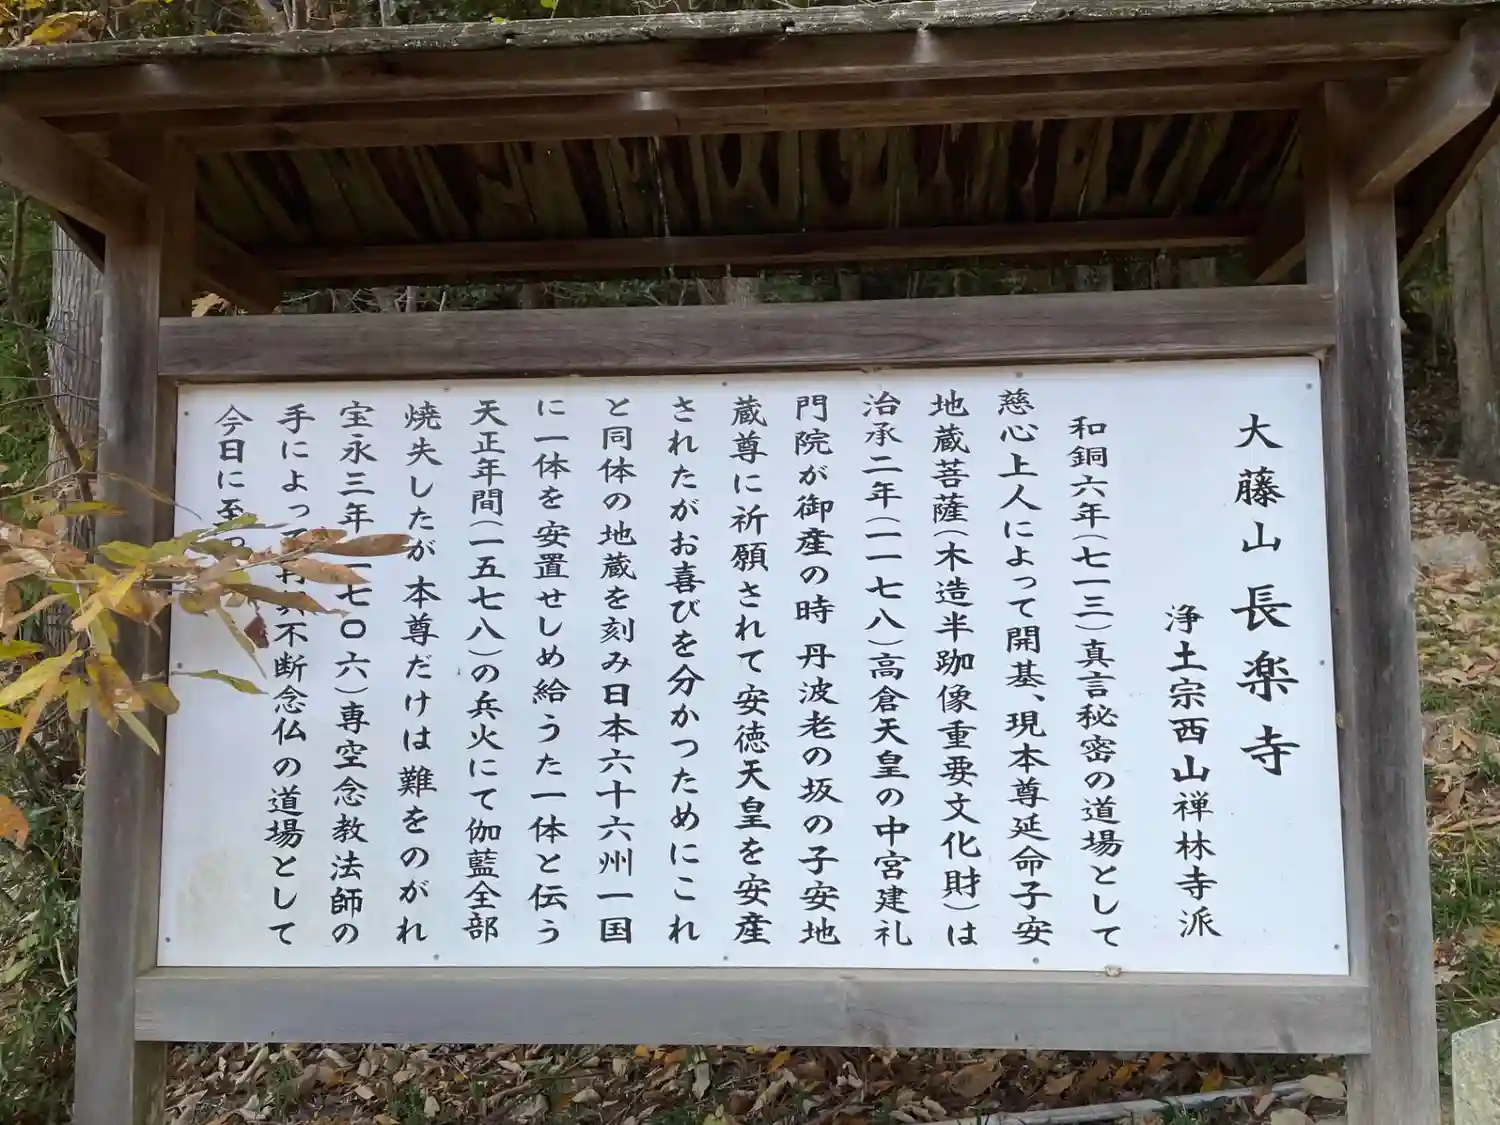 大藤山長楽寺
浄土宗西山禅林寺派
和銅六年(七一三)真言秘密の道場として
慈心上人によって開基、現本尊延命子安
地蔵菩薩(木造半跏像重要文化財)は
治承二年(一一七八)高倉天皇の中宮建礼
門院が御産の時 丹波老の坂の子安地
蔵尊に祈願されて安徳天皇を安産
されたがお喜びを分かつためにこれ
と同体の地蔵を刻み日本六十六州一国
に一体を安置せしめ給うた一体と伝う
天正年間(一五七八)の兵火にて伽藍全部
焼失したが本尊だけは難をのがれ
宝永三年(一七〇六)専空念教法師の
手によって不断念仏の道場として
今日に至